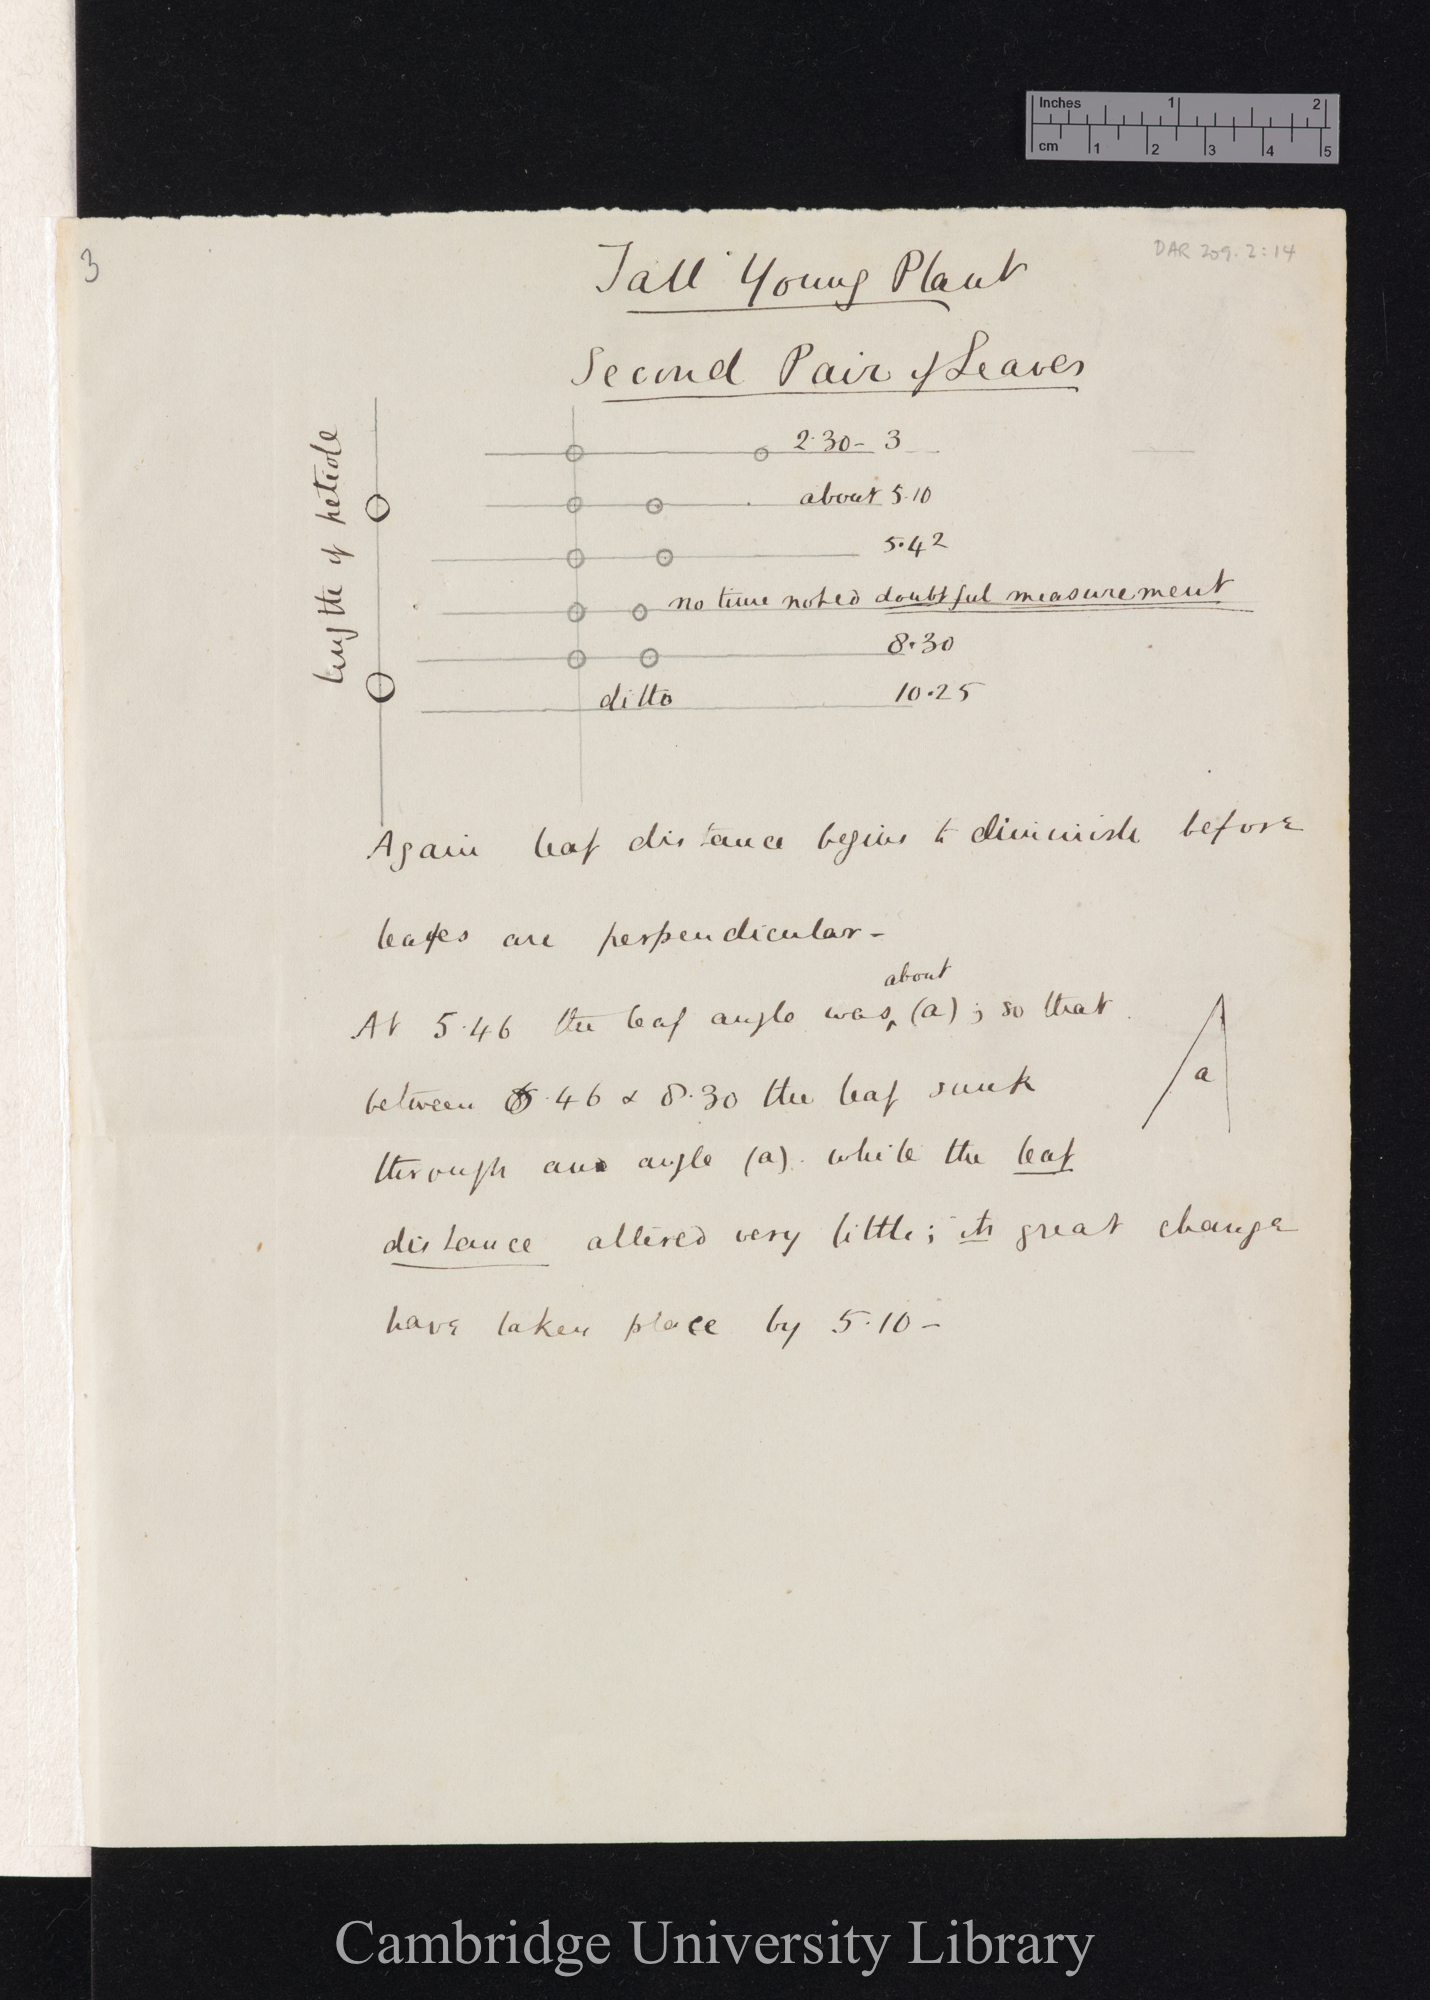 Inches 1 2
cm 1 2 3 4 5
3
DAR 209.2:14
Tall Young Plant
Second Pair of Leaves
length of petiole
2.30 - 3
about 5.10
5.42
no time noted doubtful measurement
8.30
ditto 10.25
Again leaf distance begins to diminish before
leaves are perpendicular -
about
At 5.46 the leaf angle was ‸ (a) ; so that
a
between 5.46 & 8.30 the leaf sunk
through an angle (a). while the leaf
distance altered very little; its great change
have taken place by 5.10 -
Cambridge University Library